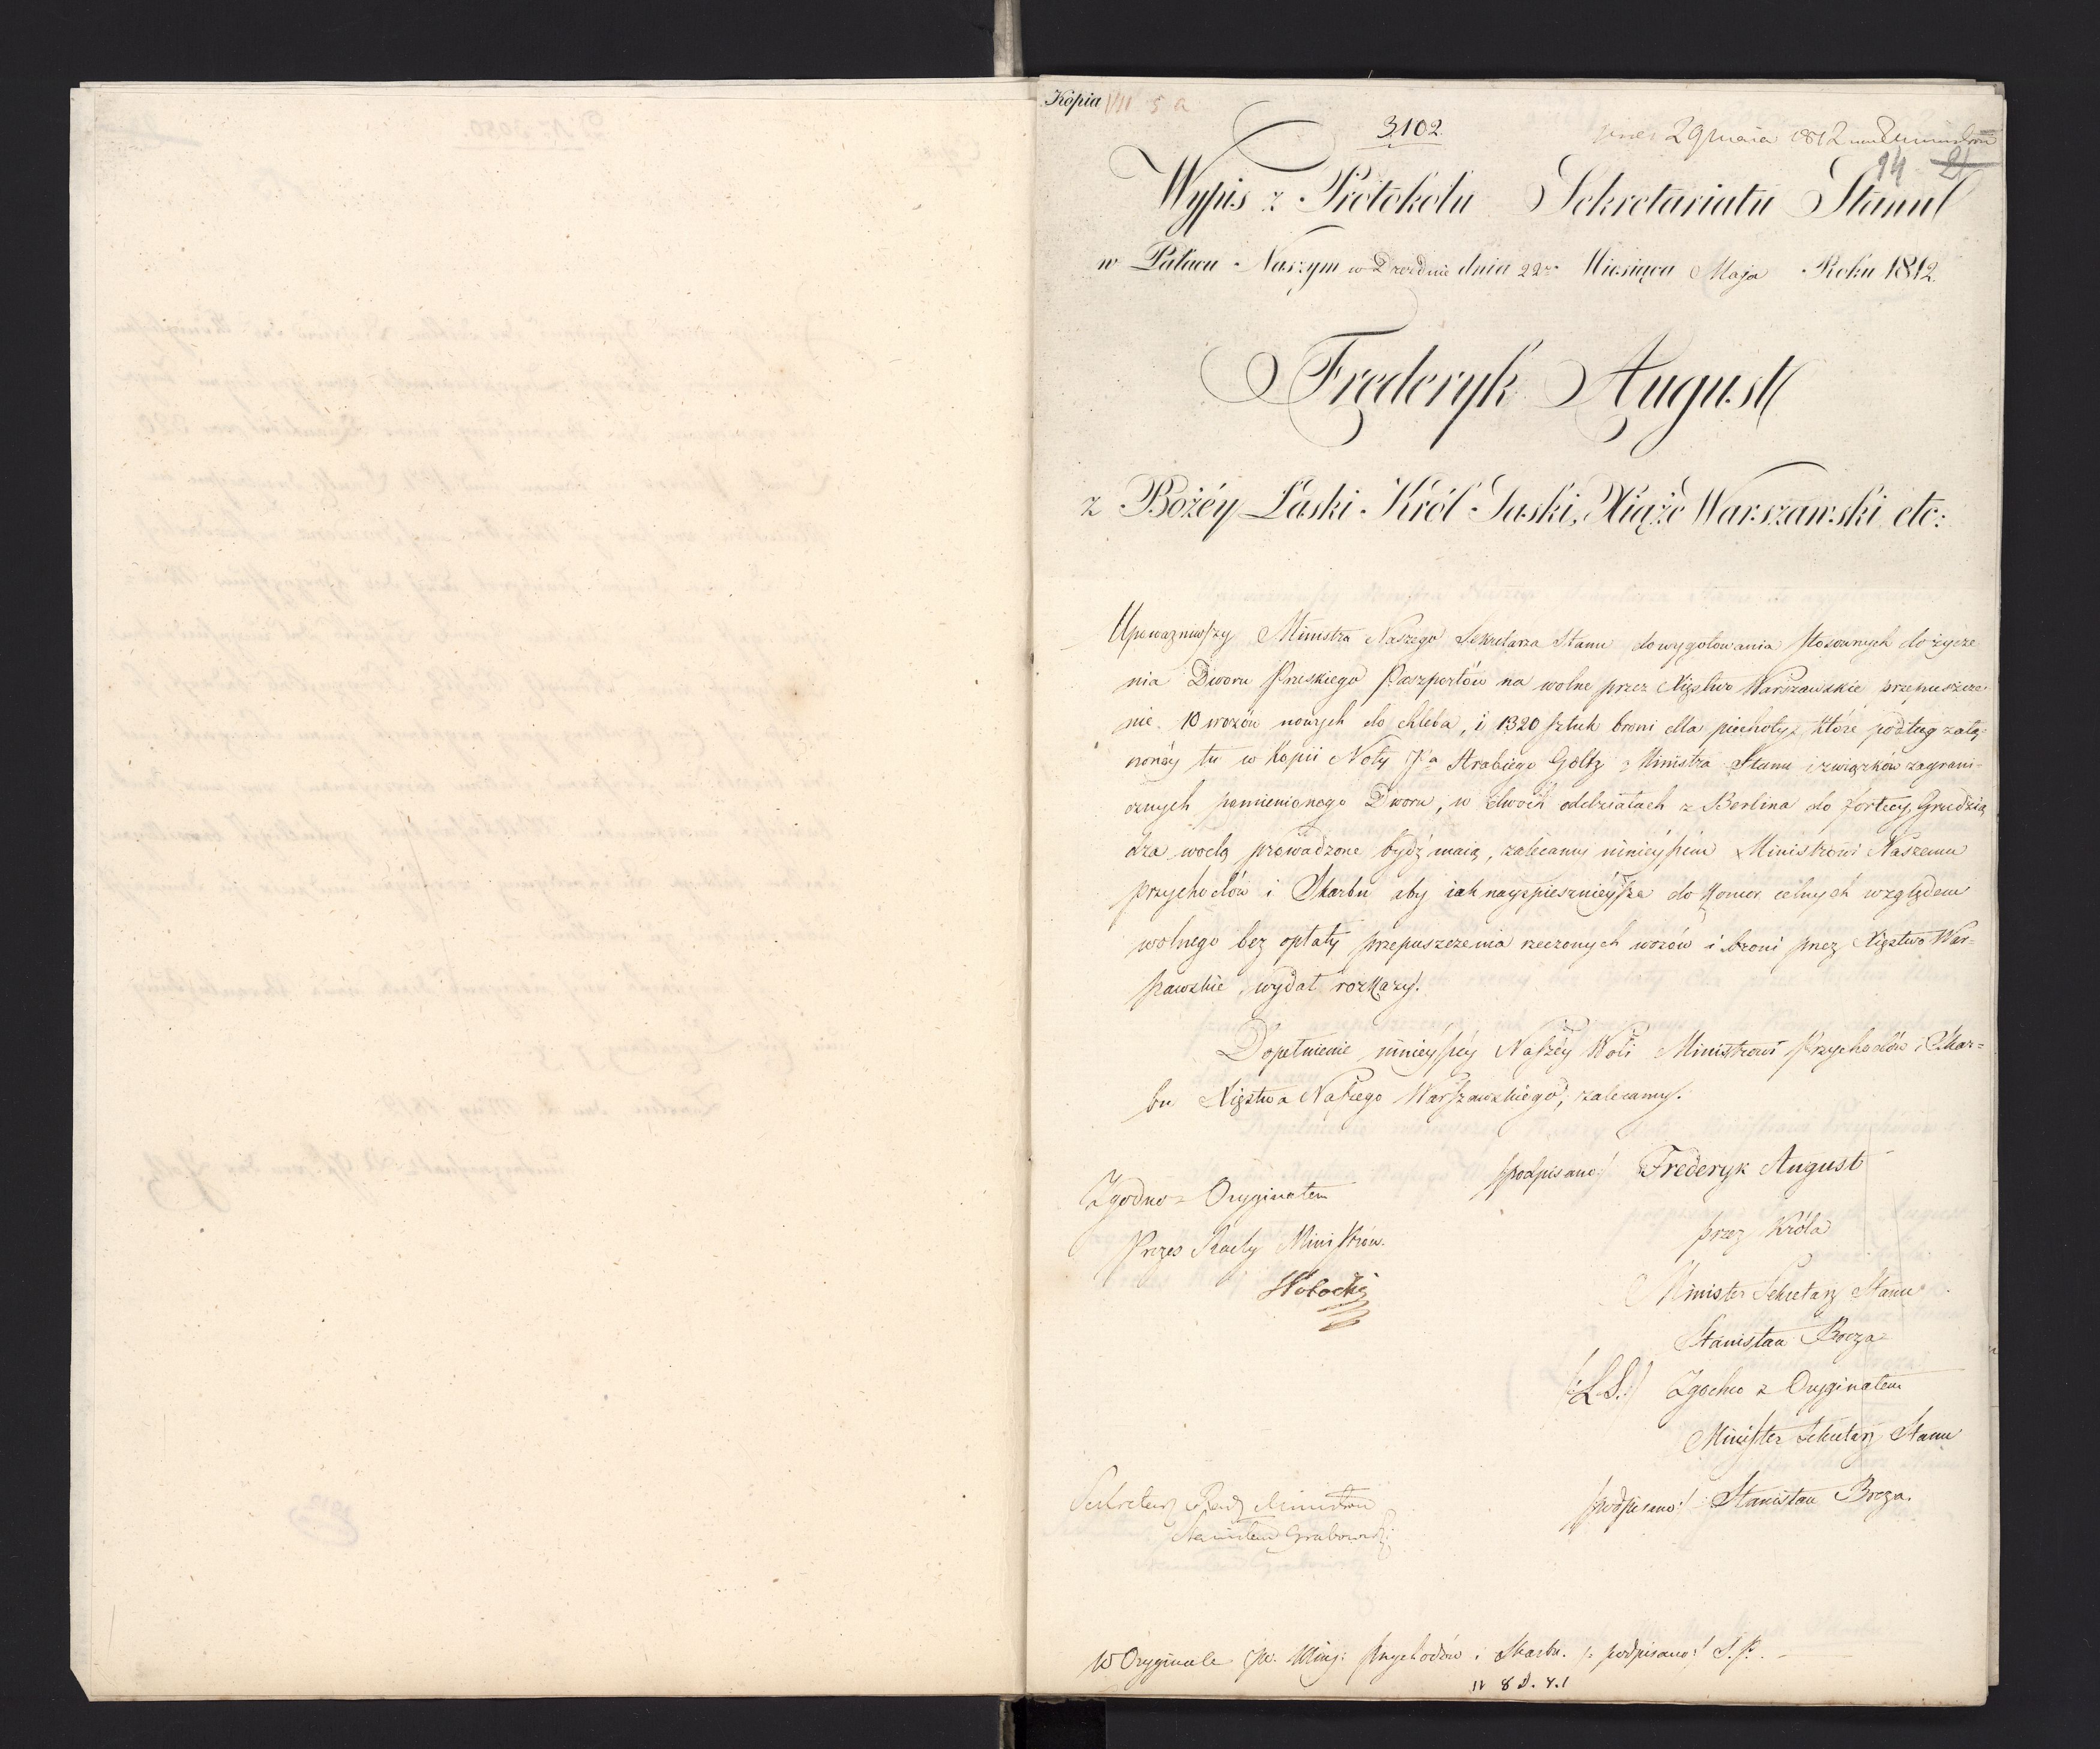 Kopia VII 5 a
3102.
29 maia 1812
14 21
Wypis z Protokołu Sekretariatu Stanu
w Pałacu Naszym w Dreźnie dnia 22go Miesiąca Maja Roku 1812.
Frederyk August
z Bożéy Łaski Król Saski, Xiąże Warszawski etc:
Upoważniwszy Ministra Naszego Sekretarza Stanu do wygotowania stosownych do życze
nia Dworu Pruskiego Paszportów na wolne przez Xięstwo Warszawskie przepuszcze-
nie 10 wozów nowych do chleba, i 1320 sztuk broni dla piechoty, które podług załą-
czonéy tu w kopii Noty Pa Hrabiego Goltz Ministra Stanu i związków zagrani-
cznych pomienionego Dworu, w dwóch oddziałach z Berlina do fortecy Grudzią
dza wodą prowadzone bydź maią, zalecamy ninieyszém Ministrowi Naszemu
przychodów i Skarbu aby iak nayspieszniéysze do Komor celnych względem
wolnego bez opłaty przepuszczenia rzeczonych wozów i broni przez Xięstwo War-
szawskie wydał rozkazy.
Dopełnienie ninieyszéy Naszéy Woli Ministrowi Przychodów i Skar-
bu Xięstwa Naszego Warszawskiego, zalecamy.
podpisano/ Frederyk August
Zgodno z Oryginałem
przez Króla
Prezes Rady Ministrów.
Minister Sekretarz Stanu
Stanisław Breza
(:L.S.:) Zgodno z Oryginałem
Minister Sekretarz Stanu
Sekretarz Rady Ministrów
podpisano/ Stanisław Breza.
Stanisław Grabowski
W Oryginale Min: Przychodów i Skarbu. /: podpisano/ S. P.